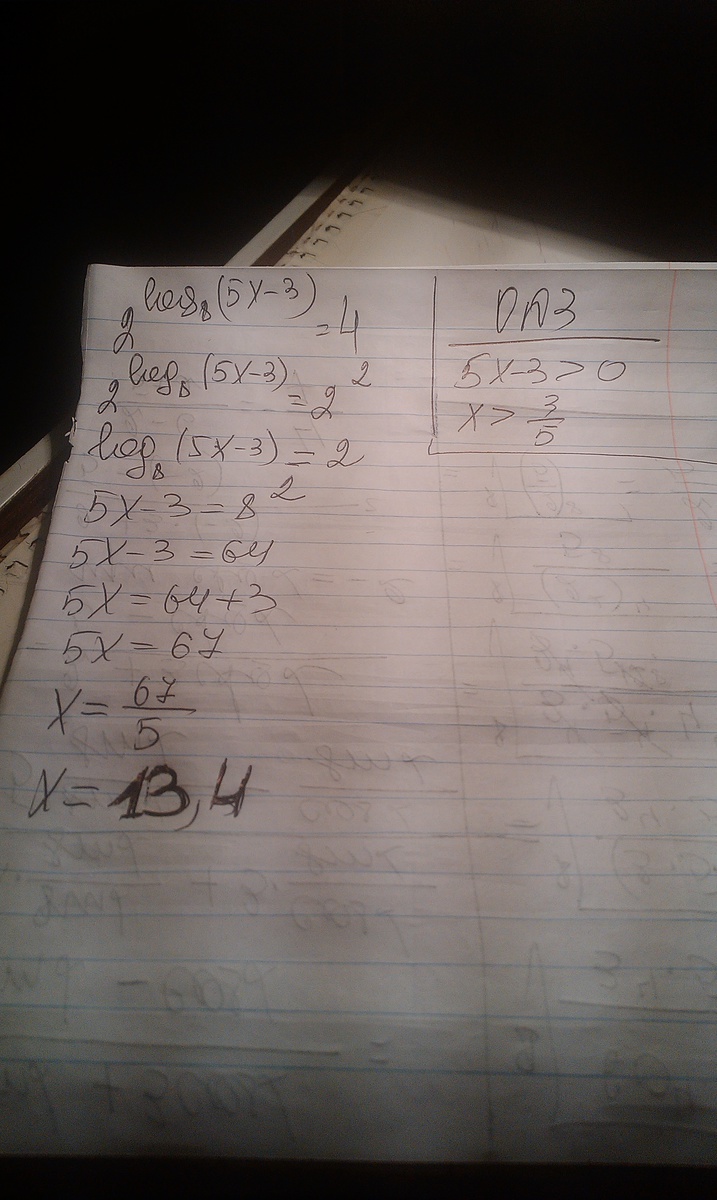 2^{log_8(5x-3)} = 4
2^{log_8(5x-3)} = 2^2
log_8(5x-3) = 2
5x-3 = 8^2
5x-3 = 64
5x = 64+3
5x = 67
x = 67/5
x = 13,4
ОДЗ
5x-3 > 0
x > 3/5